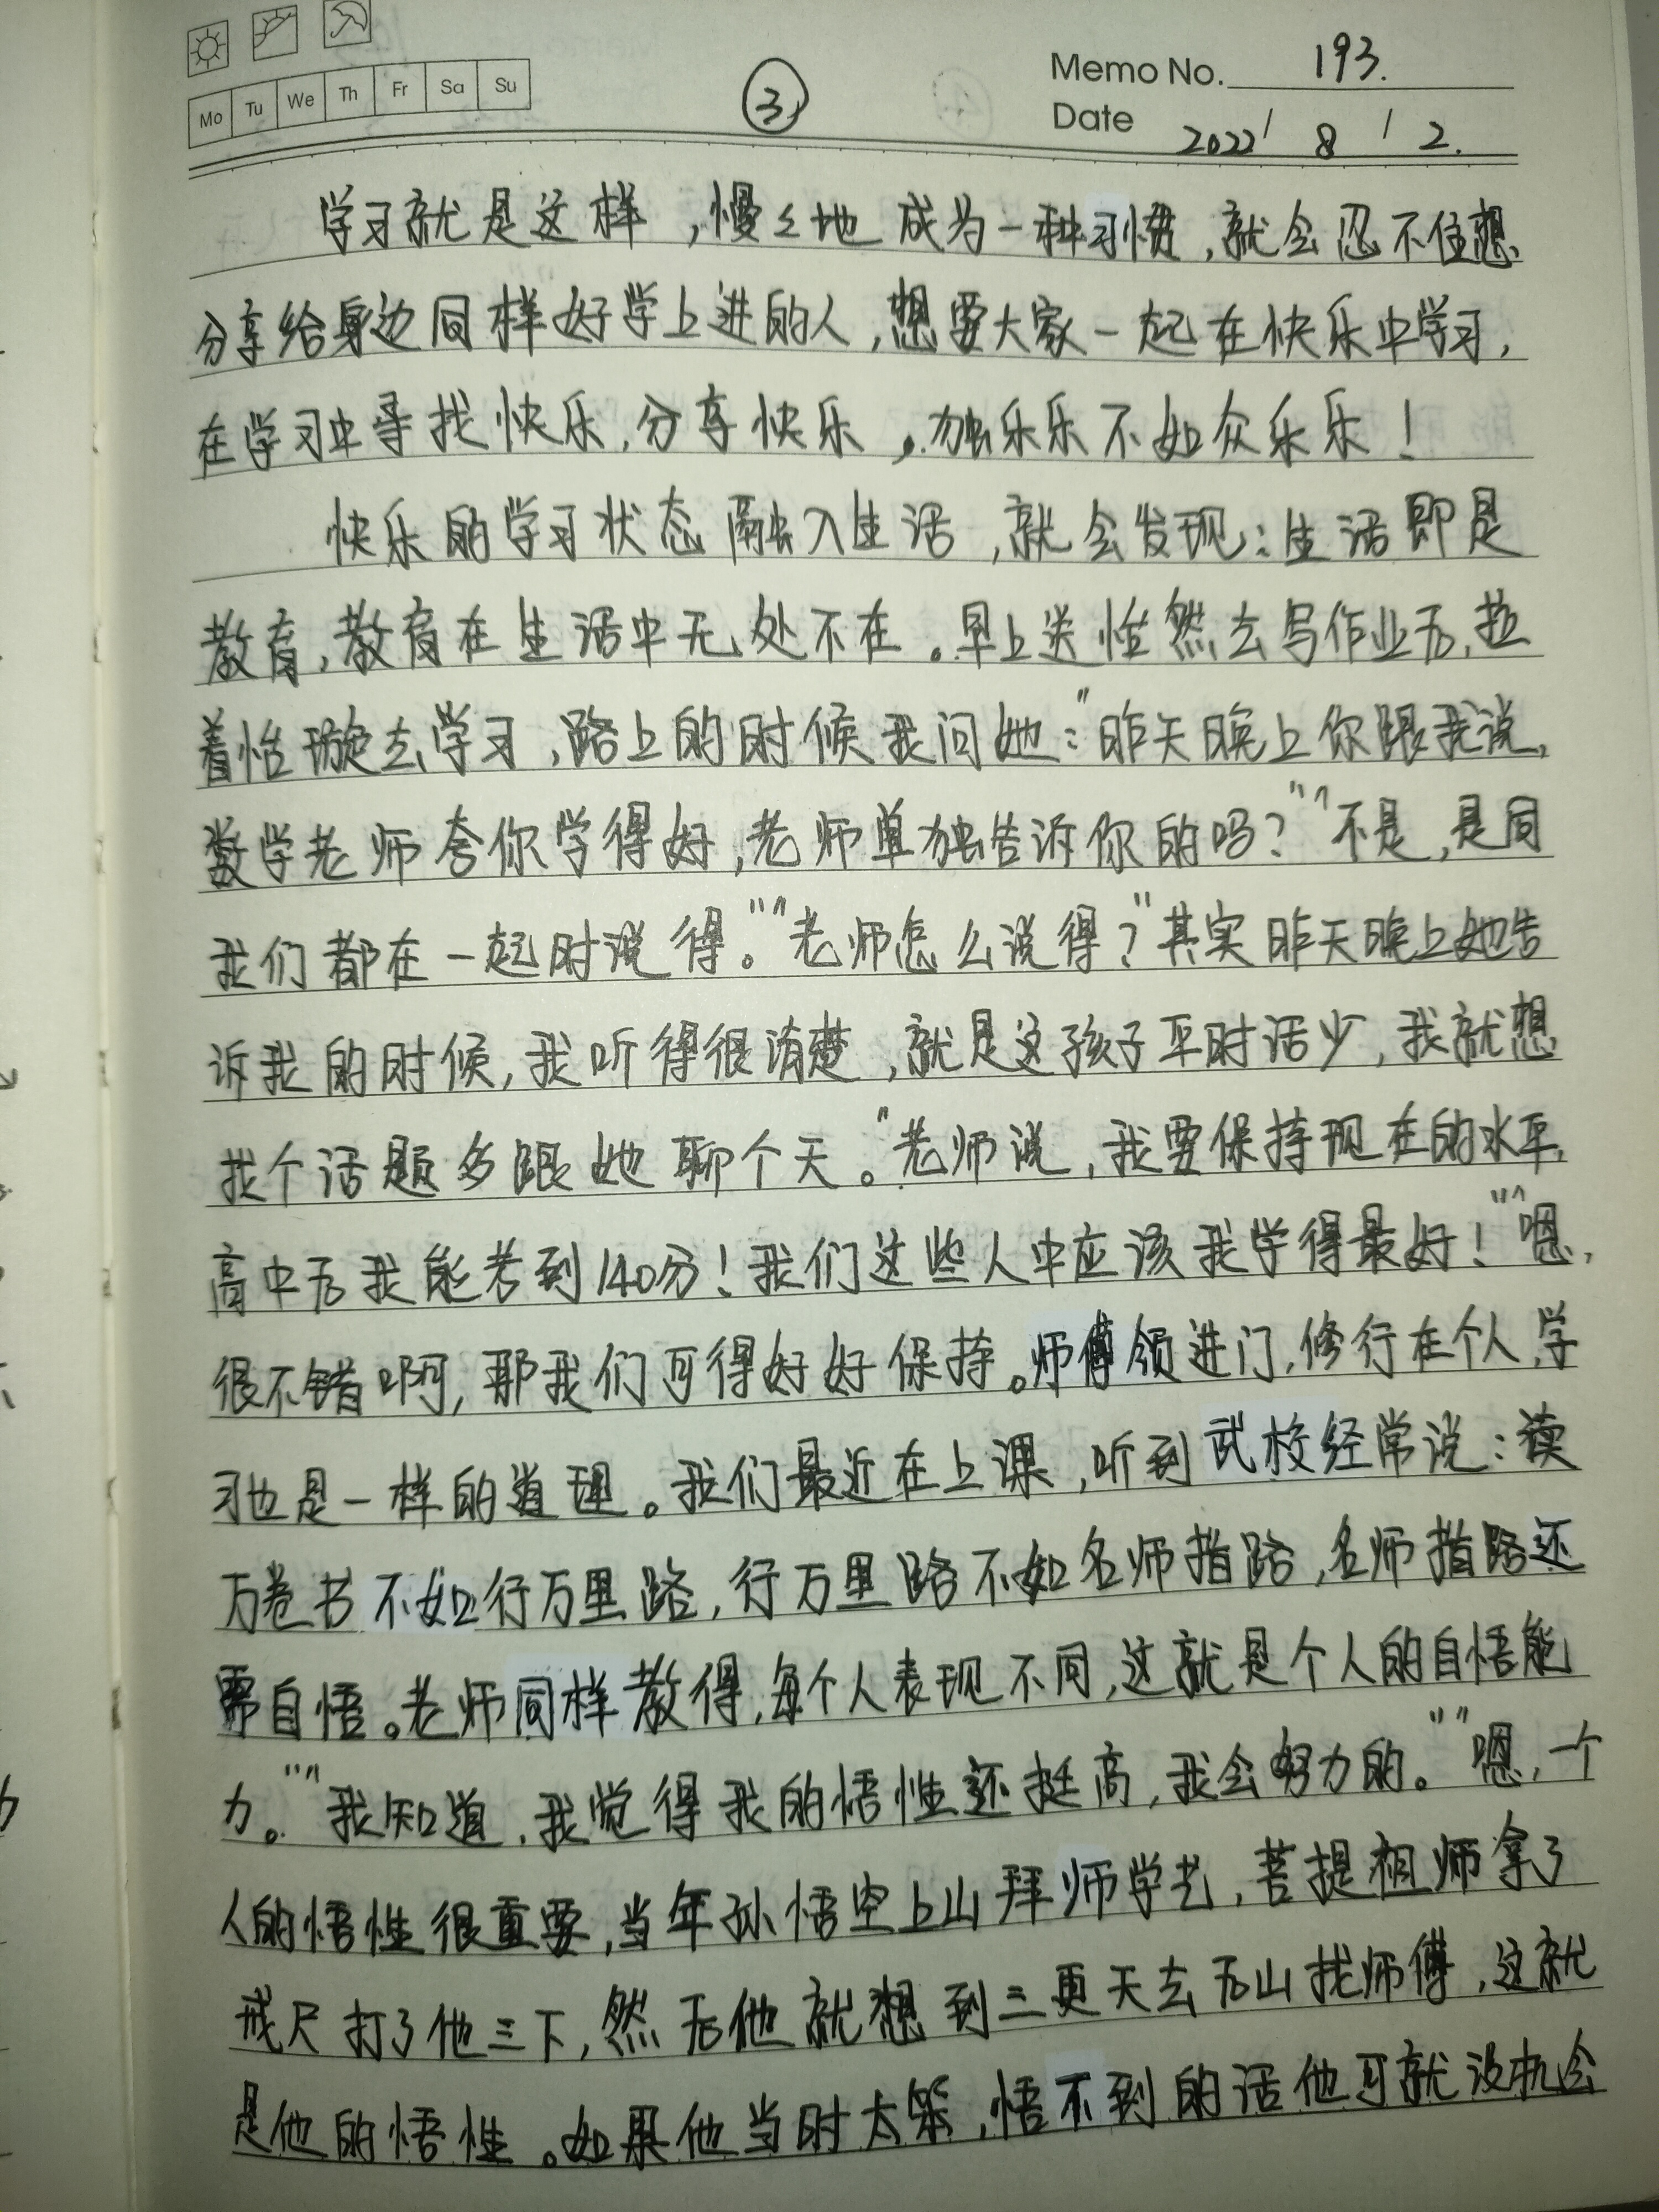 Mo Tu We Th Fr Sa Su
③
Memo No. 193.
Date 2022/8/2.
学习就是这样，慢慢地成为一种习惯，就会忍不住想
分享给身边同样好学上进的人，想要大家一起在快乐中学习，
在学习中寻找快乐，分享快乐，独乐乐不如众乐乐！
快乐的学习状态融入生活，就会发现：生活即是
教育，教育在生活中无处不在。早上送怡然去写作业后，拉
着怡璇去学习，路上的时候我问她：“昨天晚上你跟我说，
数学老师夸你学得好，老师单独告诉你的吗？”“不是，是同
我们都在一起时说得。”“老师怎么说得？”其实昨天晚上她告
诉我的时候，我听得很清楚，就是这孩子平时话少，我就想
找个话题多跟她聊个天。“老师说，我要保持现在的水平，
高中后我能考到140分！我们这些人中应该我学得最好！”“嗯，
很不错啊，那我们可得好好保持。师傅领进门，修行在个人，学
习也是一样的道理。我们最近在上课，听到武校经常说：读
万卷书不如行万里路，行万里路不如名师指路，名师指路还
需自悟。老师同样教得，每个人表现不同，这就是个人的自悟能
力。”“我知道，我觉得我的悟性还挺高，我会努力的。”“嗯，一个
人的悟性很重要，当年孙悟空上山拜师学艺，菩提祖师拿了
戒尺打了他三下，然后他就想到三更天去后山找师傅，这就
是他的悟性。如果他当时太笨，悟不到的话他可就没机会